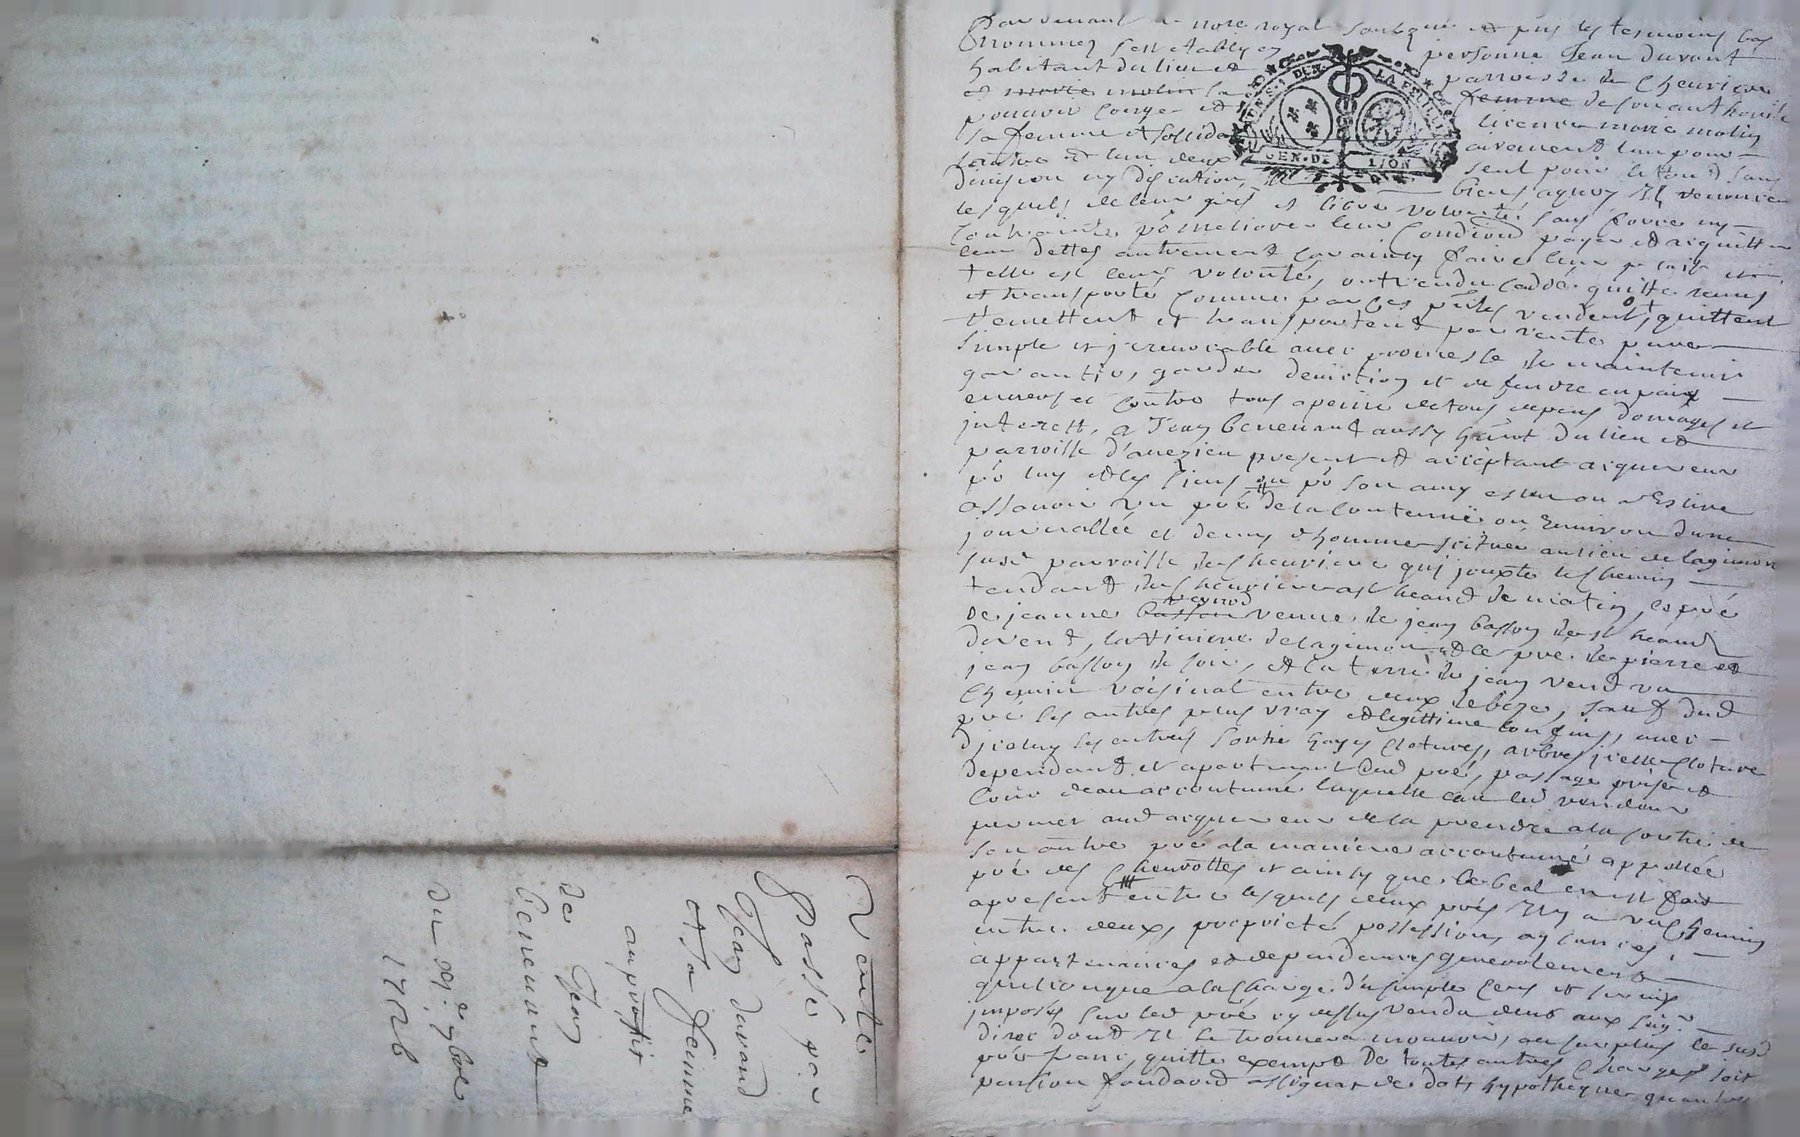 Pardevant le notre royal soubzne et pns les tesmoins bas
nommez sest estably en personne Jean durant
habitant du lieu et parroisse de Cheurieres
et marie molin sa femme de son authorité
pouvoir conger et licence marie molin
sa femme et sollidairement lun pour
lautre et lun deux seul pour le tout sans
division ny discution
lesquels de leur gré et libre volonté sans force ny
contrainte po meliorer leur condition payer et acquitter
leur dettes autrement car ainsy faire leur plait et
telle est leur volonté, ont vendu ceddé quitté remis
et transporté comme par ces pntes vendent, quittent
remettent et transportent par vente pure
simple et jrrevocable avec promesse de maintenir
garantir, garder deviction et deffendre en paix
envers et contre tous a peine de tous depens domages et
interest, a Jean Benevant aussy habitant du lieu et
parroisse d'avezieu present et acceptant acquereur
po luy et les siens ou po son amy esleu ou a Eslire
assavoir un pré de la contenue ou Environ dune
journallée et demy dhomme scituée au lieu de lagimon
susd parroisse de cheuriere qui jouxte le chemin
tendant de cheuriere a st heand de matin, le pré
de jeanne basson veuve de jean basson de st heand
de vent, la riviere de lagimon et le pré de pierre et
jean basson de soir, et la terre de jean vend
chemin voisinal entre deux de bize, sauf dud
pré les autres plus vray et legittime confins, avec
diceluy ses entrées sortie hayes clotures, arbres jcelle cloture
dependant et apartenant dud pré, passage prise et
cours deau accoutumé laquelle eau led vendeur
permet aud acquereur de la prendre a la sortie de
son autre pré a la maniere accoutumé appellée
pré des Cheurottes et ainsy que le beal en est fait
apresent entre lesquels deux prés il y a un chemin
entre deux, proprieté possession aysances
appartenances et dependances generalement
quelconque a la charge du simple cens et servis
imposés sur led pré cy dessus vendu deub aux seigrs
direc dont il se trouvera mouvoir, au surplus le susd
pré franc quitte exempt de toutes autres charges soit
pension fondaōn assignat de dot hypotheque quantes
Vente
Passé par
Jean durand
et sa femme
au proffit
de Jean
Benevant
du 29e 9bre
1726